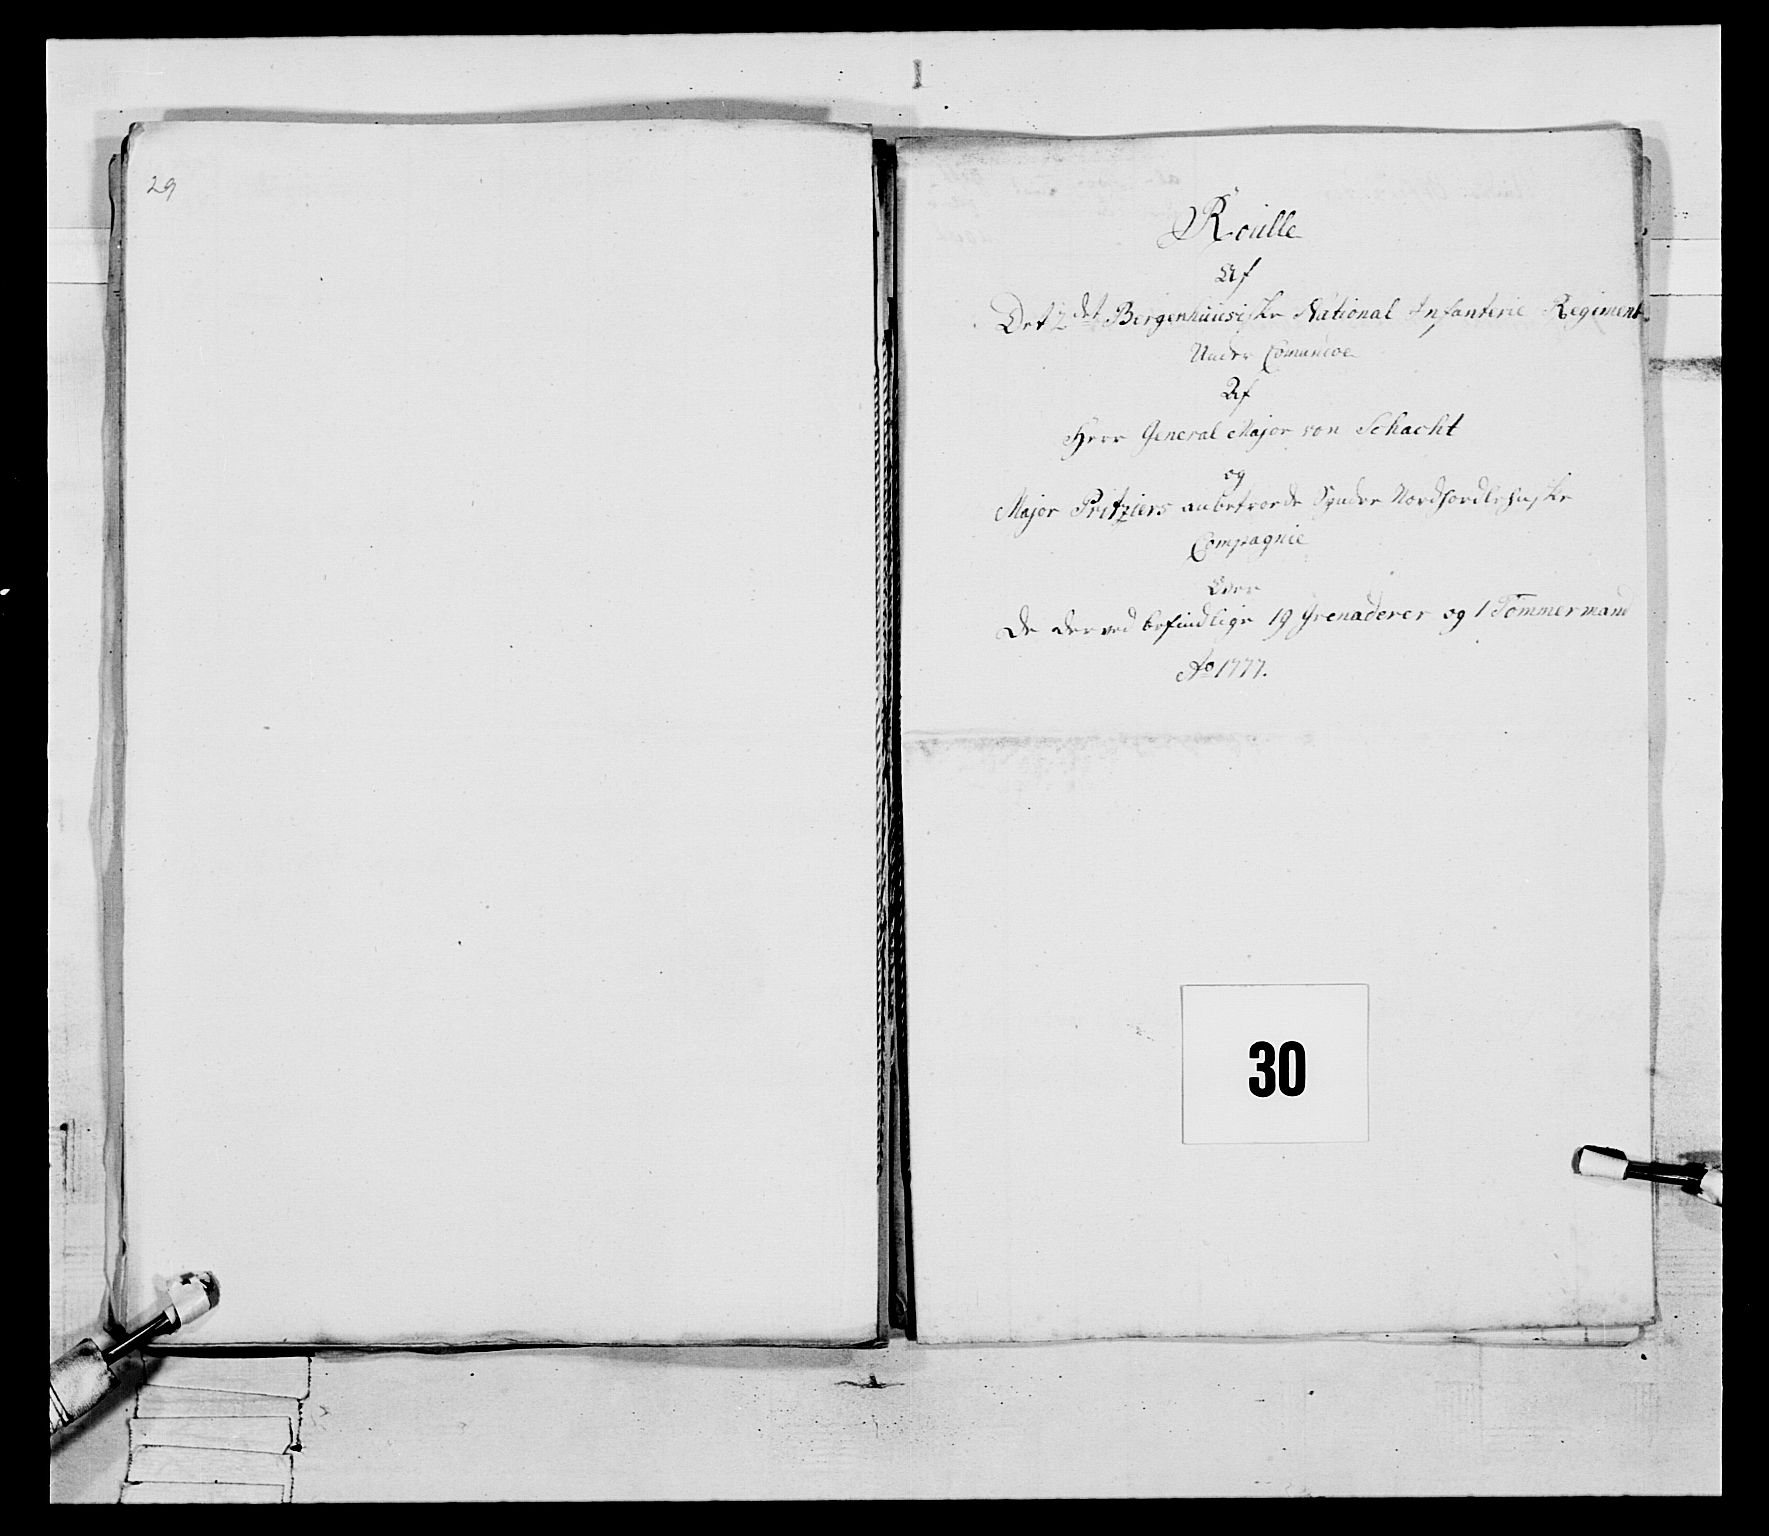 29
Roulle
Af
Det 2det Bergenhuusiske National Infanterie Regiment
Under Comandoe
Af
Herr General Major von Schacht
og
Major Pritziers anbetroede Syndre Nordhordlehnske
Compagnie
Over
De derved befindlige 19 Grenaderer og 1 Tømmermand
Ao 1777.
30